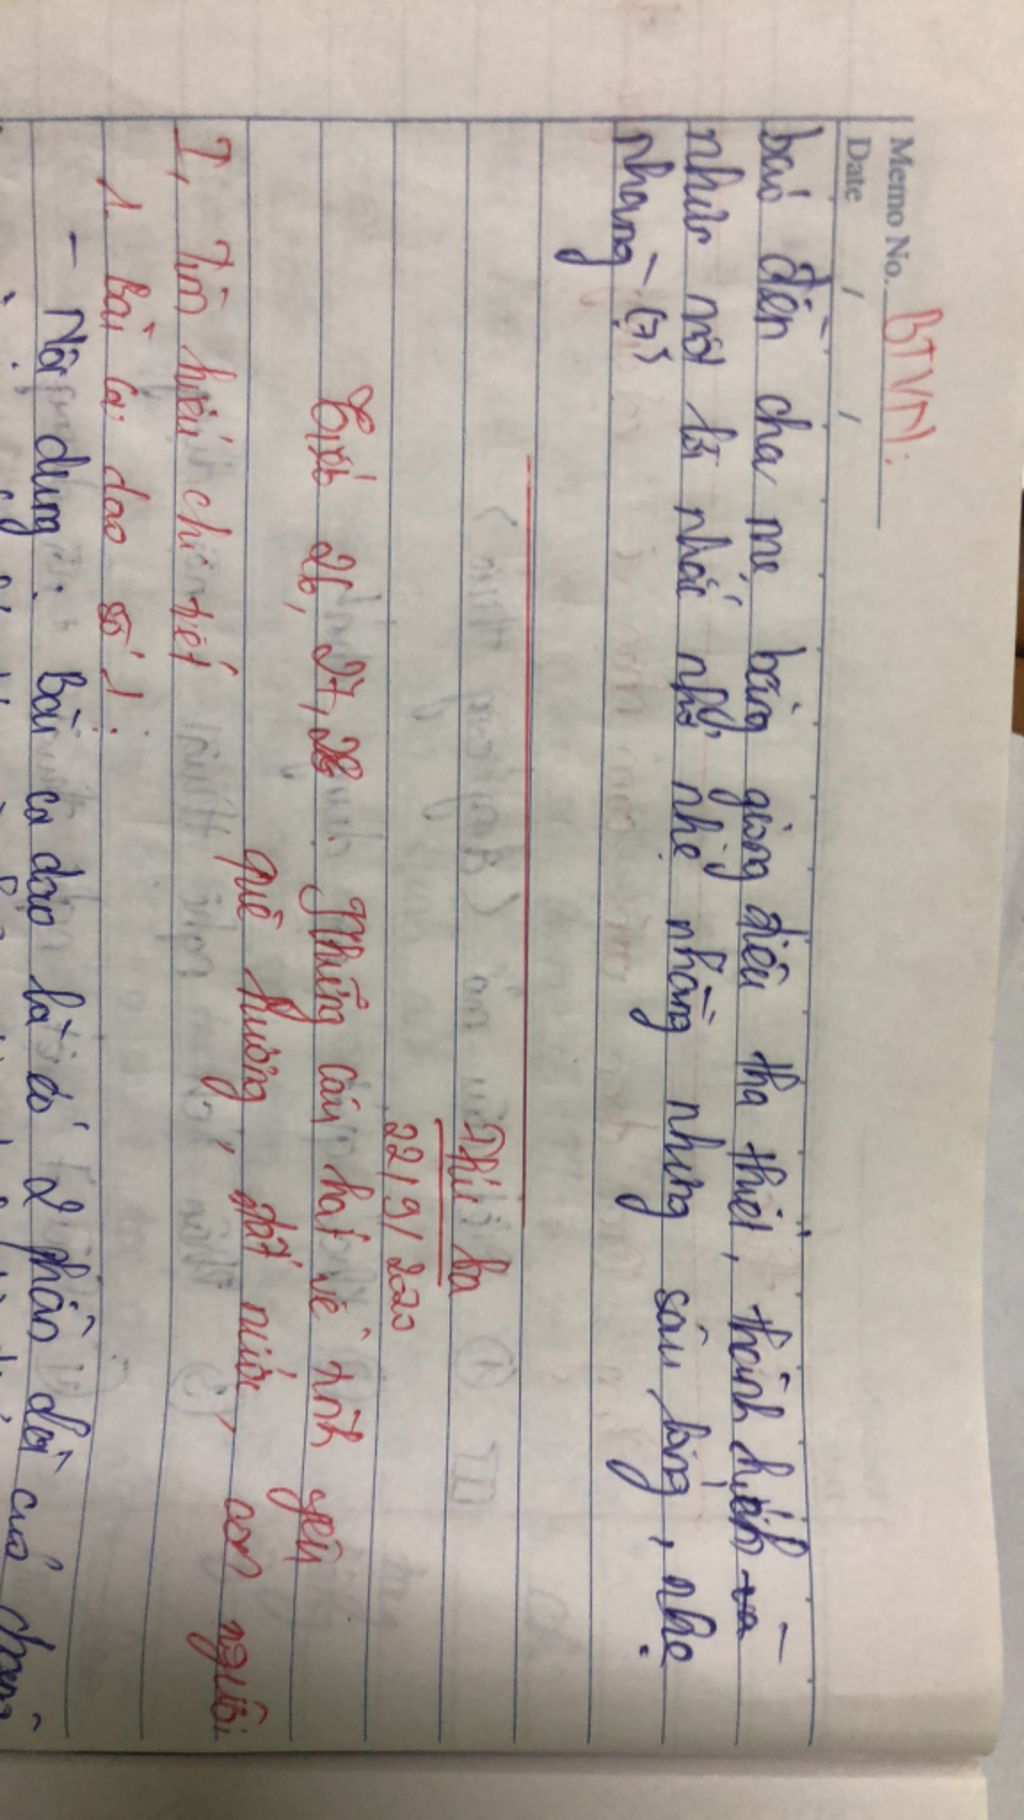 Memo No. BTVN:
Date / /
báo đến cha mẹ, bằng giọng điệu tha thiết, thành
nhức nhối lời nhắc nhở nhẹ nhàng nhưng sâu lắng, nhẹ
nhàng - (7)
Thứ ba
22/9/2020
Tiết 26, 27, 28 Những câu hát về tình yêu
quê hương, đất nước, con người
I, Tìm hiểu chi tiết
1. Bài ca dao số 1:
- Nội dung: Bài ca dao là có 2 phần